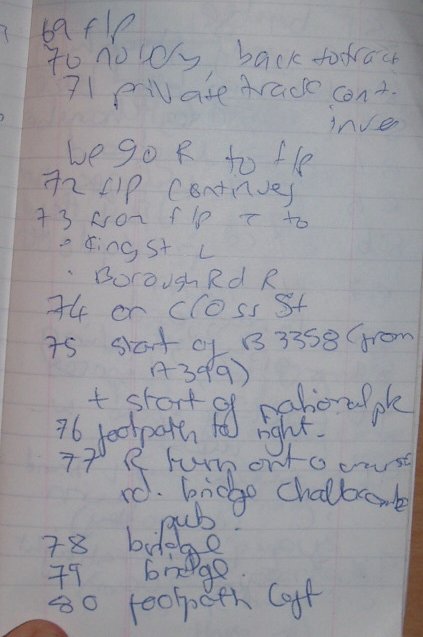 69 f/p
70 no lorry, back to track
71 private track cont-
inues
we go R to f/p
72 f/p continues
73 from f/p to
: King St L
: Borough Rd R
74 on Cross St
75 start of B3358 (from
A399)
+ start of national pk
76 footpath to right.
77 R turn onto
rd. bridge Challacombe
pub.
78 bridge
79 bridge.
80 footpath left